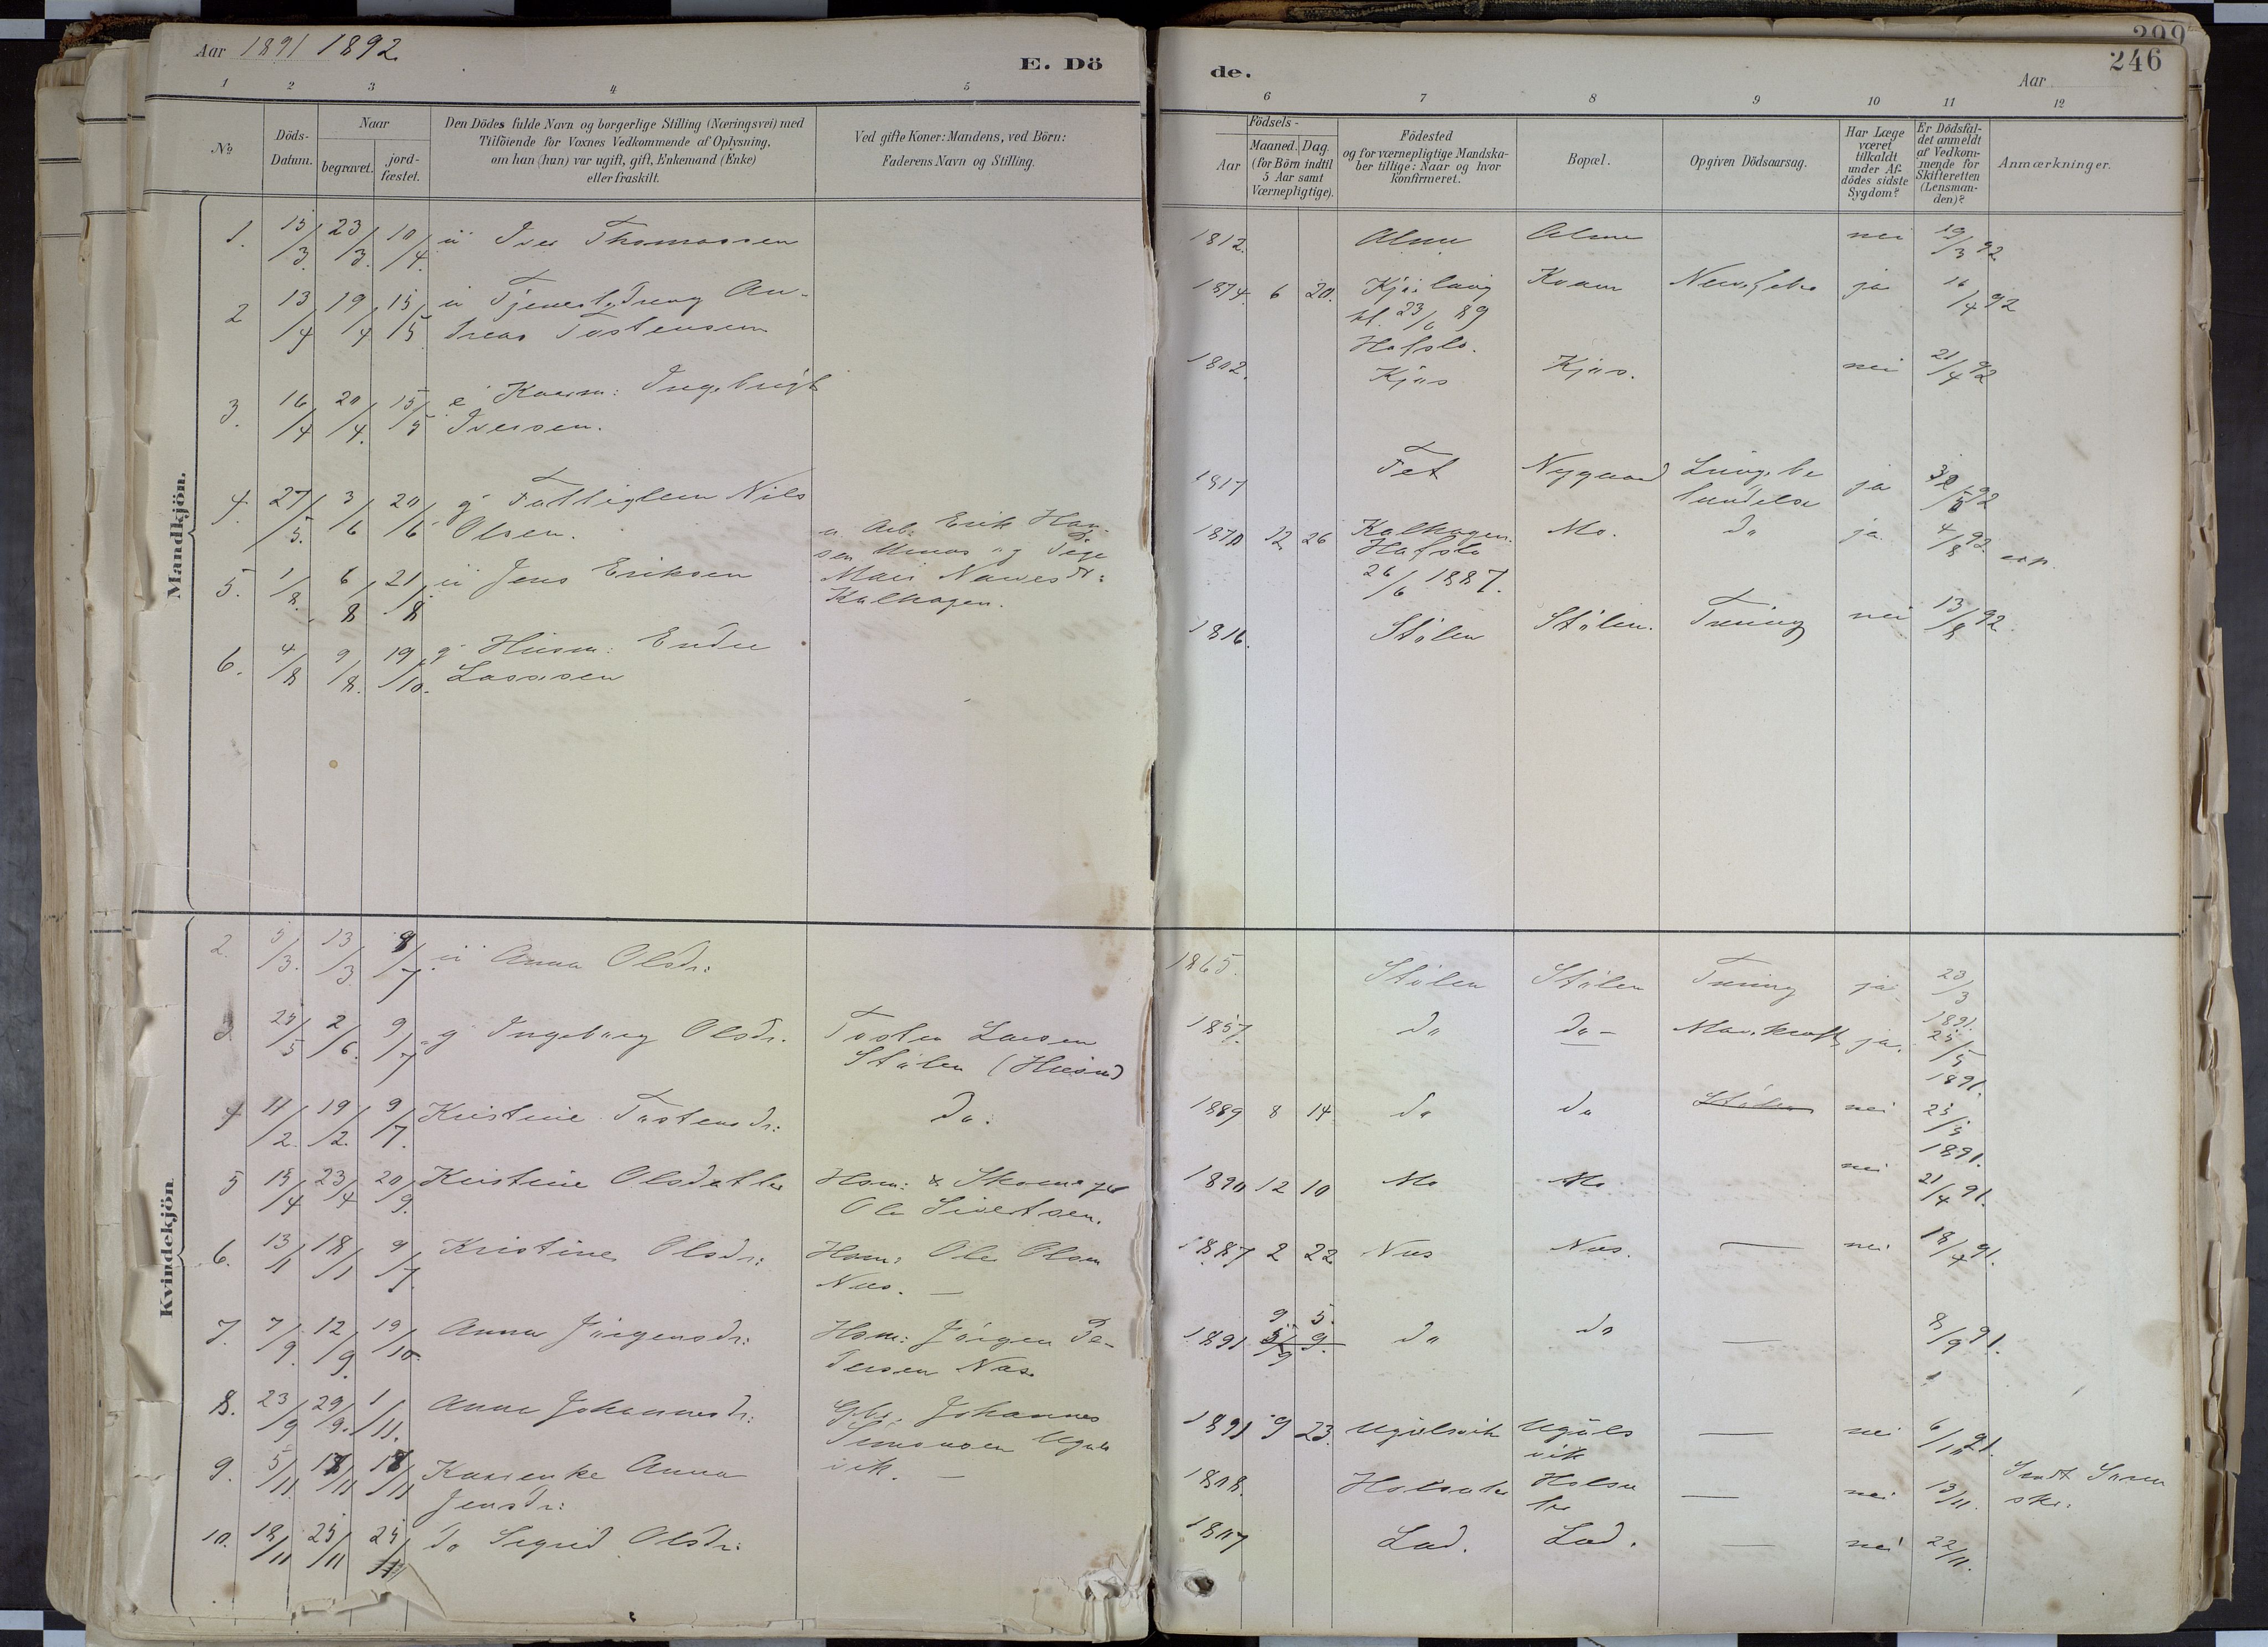 Aar 1891 1892.
E. Dö
de.
Aar
299
246
1 2 3 4 5
6 7 8 9 10 11 12
No
Döds-
Datum.
Naar
begravet.
jord-
fæstet.
Den Dödes fulde Navn og borgerlige Stilling (Næringsvei) med
Tilföiende for Voxnes Vedkommende af Oplysning,
om han (hun) var ugift, gift, Enkemand (Enke)
eller fraskilt.
Ved gifte Koner: Mandens, ved Börn:
Faderens Navn og Stilling.
Födsels-
Aar
Maaned. Dag.
(for Börn indtil
5 Aar samt
Værnepligtige).
Födested
og for værnepligtige Mandska-
ber tillige: Naar og hvor
konfirmeret.
Bopæl.
Opgiven Dödsaarsag.
Har Læge
været
tilkaldt
under Af-
dödes sidste
Sygdom?
Er Dödsfal-
det anmeldt
af Vedkom-
mende for
Skifteretten
(Lensman-
den)?
Anmærkninger.
Mandkjön.
1. 15/3. 23/3. 10/4. u Iver Thomassen 1812. Alme Alme nei 19/3 92
2 13/4 19/4 15/5 u Tjenestedreng An-
dreas Tostensen
1874. 6 20. Kvam ja 16/4 92
kf. 23/6 89
Hafslo.
3. 16/4 20/4. 15/5 e Kaarm: Ingebrigt
Iversen.
1802. Kjøs Kjøs. nei 21/4 92
4. 27/5. 3/6 20/6 g Fattiglem Nils
Olsen.
1817 Fet Nygaard Lungebe
tændelse ja 92
5. 1/8. 6/8 21/8 u Jens Eriksen
Arb: Erik Han-
sen
Kalhagen.
1870 12 26 Kalhagen.
Hafslo
26/6 1887.
Mo. do ja 4/8 92.
6. 4/8 9/8. 19/10. g Husm: Endre
Lassesen
1816. Stölen Stölen. Tæring nei 13/8 92.
Kvindekjön
2. 5/3. 13/3 9/7 u Anna Olsdr:
1865. Stölen Stölen Tæring ja 23/3
1891.
3 25/5 2/6. 9/7 g Ingeborg Olsdr. Tosten Larsen
Stölen (Husm)
1857. do do - ja. 25/5
1891.
4 11/2 19/2. 9/7. Kristine Tostensdr: Do:
1889 8 14 do do Stölen nei 25/5
1891.
5 15/4 23/4 20/9. Kristine Olsdatter Hsm: & Skomager
Ole Sivertsen.
1890 12 10 Mo Mo nei 21/4 91.
6. 13/1 18/1 9/7 Kristine Olsdr: Hsm: Ole Olsen
Næs. —
1887 2 22 Næs Næs. — nei 18/4 91.
7. 7/9. 12/9. 19/10. Anna Jörgensdr: Hsm: Jörgen Pe-
dersen Næs.
1891 9 5. do do — 8/9 91.
8. 23/9 29/9. 1/11. Anna Johannesdr: Gbr: Johannes
Simonsen Uguls
vik. —
1891 9 23. Ugulsvik Uguls
vik — nei 6/10 91.
9. 5/11. 18/11 18/11 Kaarenke Anna
Jensdr:
1808. Holsæter Holsæ
ter — nei 13/11.
10. 18/11 25/11 25/11 do Sigrid Olsdr:
1807 Lad. Lad. — nei 22/11.